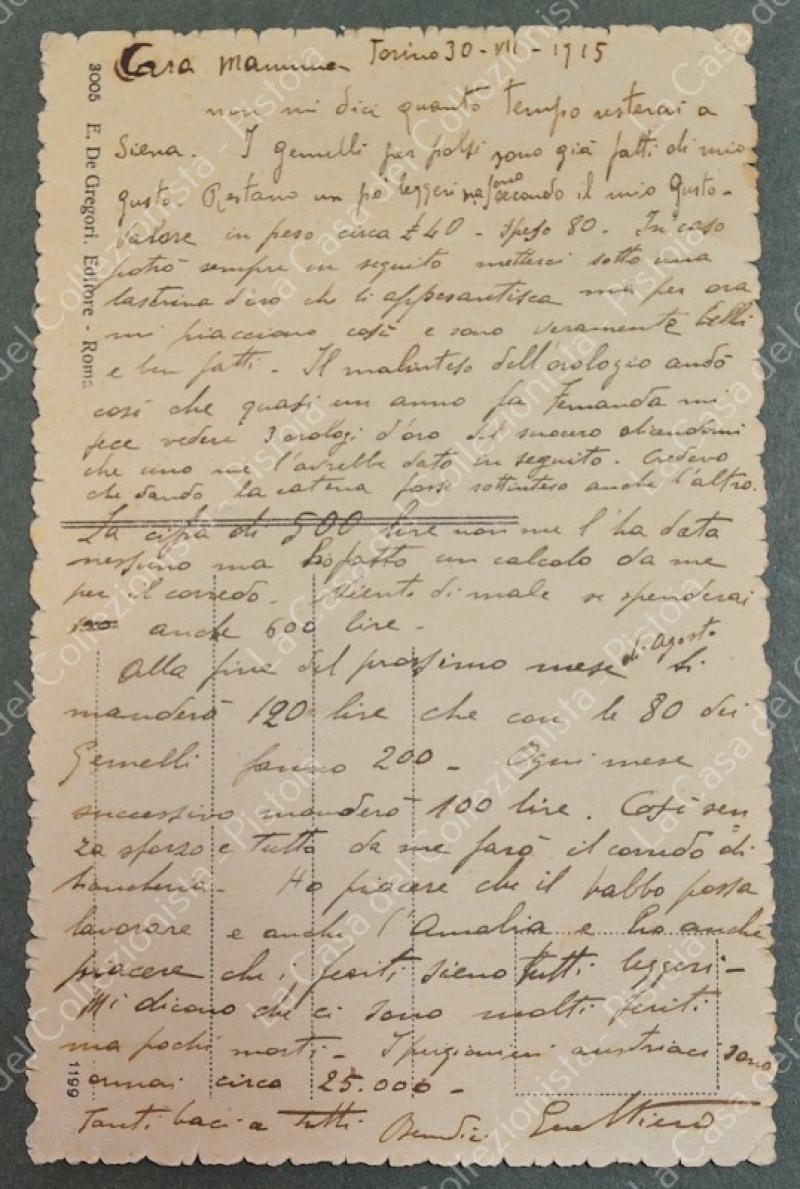 Cara Mamma Torino 30-VII-1915
non mi dici quanto tempo resterai a
Siena. I gemelli per polsi sono già fatti di mio
gusto. Restano un po' leggeri ma sono secondo il mio gusto.
Valore in peso circa £ 40 - speso 80. In caso
potrò sempre in seguito metterci sotto una
lastrina d'oro che li appesantisca ma per ora
mi piacciono così e sono veramente belli
e ben fatti - Il malinteso dell'orologio andò
così che quasi un anno fa Fernanda mi
fece vedere 3 orologi d'oro del suocero dicendomi
che uno me l'avrebbe dato in seguito. Credevo
che dando la catena fosse sottinteso anche l'altro.
La cifra di 500 lire non me l'ha data
nessuno ma ho fatto un calcolo da me
per il corredo. Niente di male se spenderai
anche 600 lire -
Alla fine del prossimo mese di Agosto ti
manderò 120 lire che con le 80 dei
Gemelli fanno 200 - Ogni mese
successivo manderò 100 lire. Così sen
za sforzo e tutto da me farò il corredo di
biancheria - Ho piacere che il babbo possa
lavorare e anche l'Amalia e ho anche
piacere che i feriti sieno tutti leggeri -
Mi dicono che ci sono molti feriti
ma pochi morti - I prigionieri austriaci sono
ormai circa 25.000 -
Tanti baci a tutti Benedici Gualtiero
3005 E. De Gregori. Editore - Roma
1199
La Casa del Collezionista - Pistoia